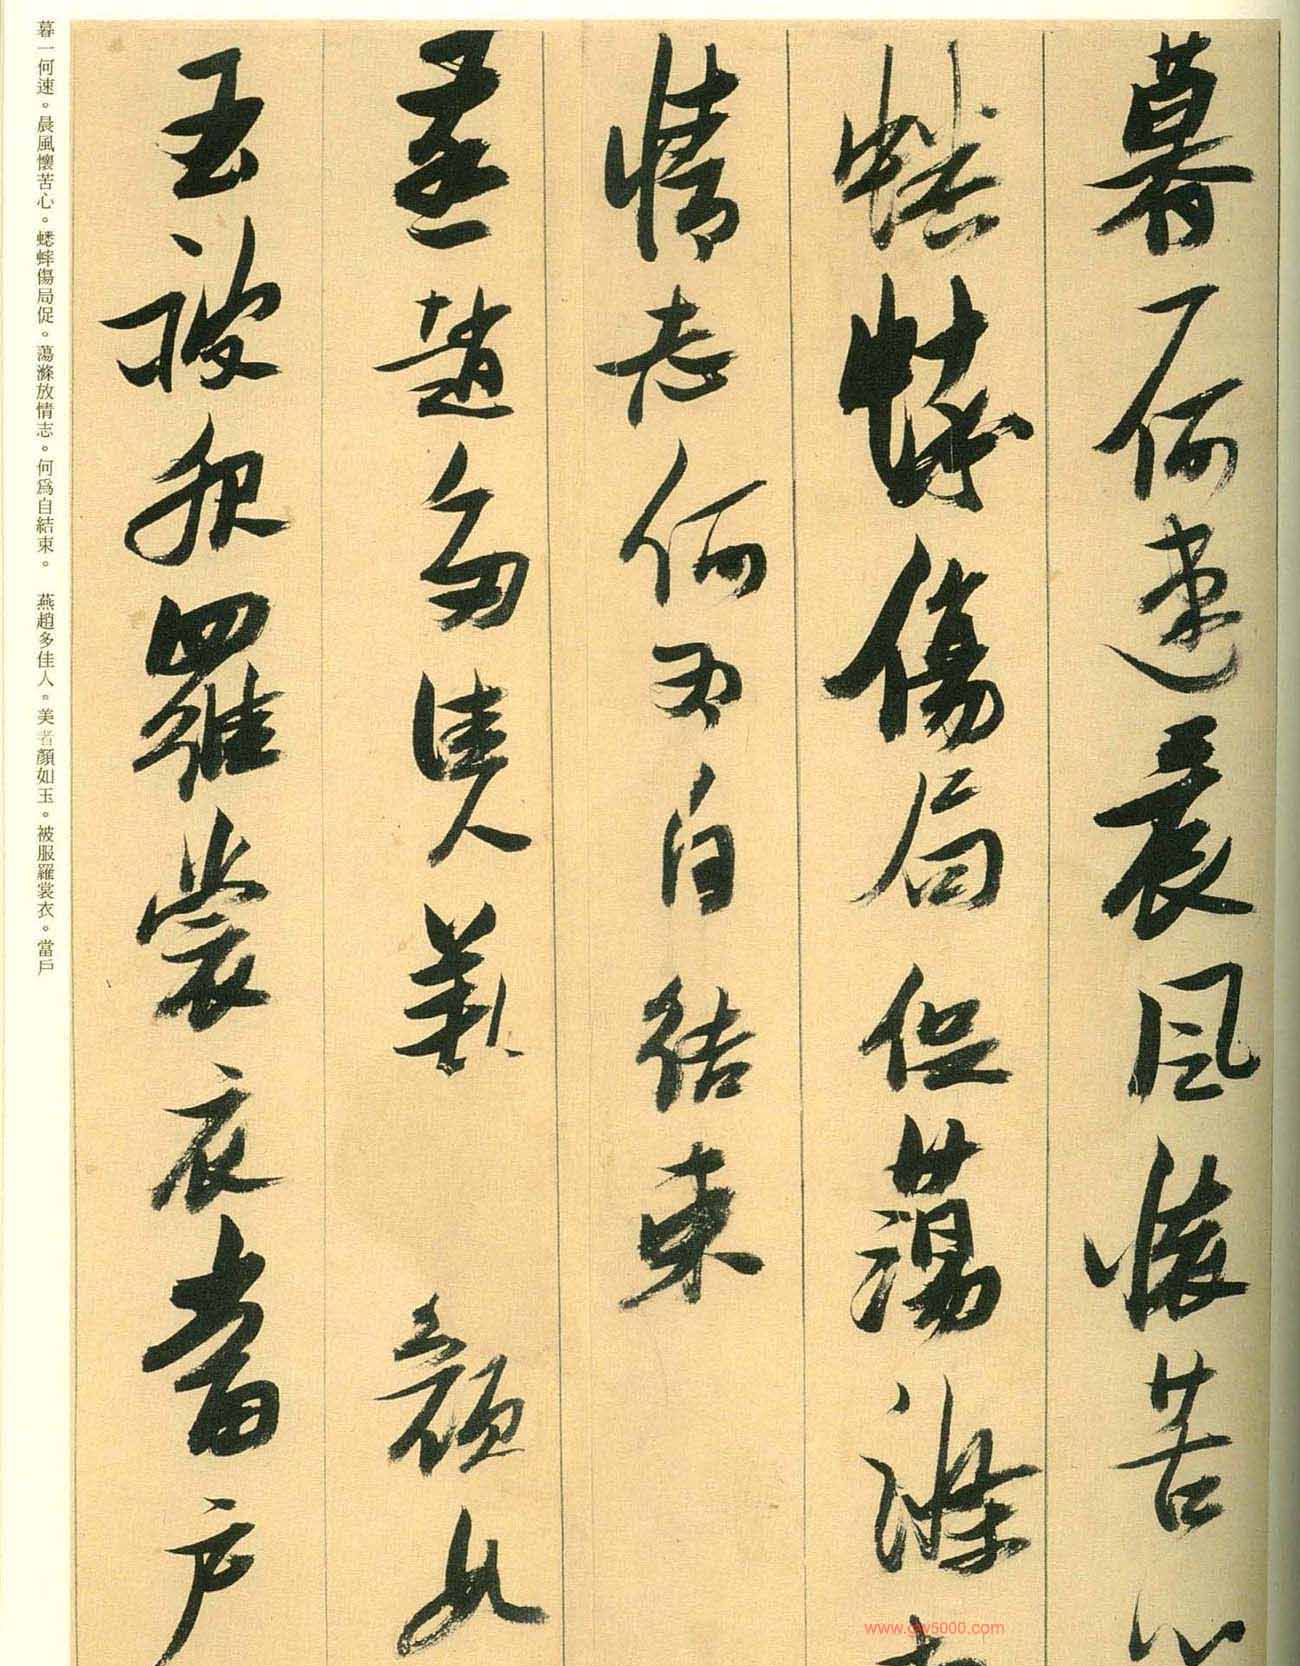 暮一何速晨風懷苦心
蟋蟀傷局促蕩滌放
情志何為自結束
燕趙多佳人美顏如
玉被服羅裳衣當戶
暮一何速。晨風懷苦心。蟋蟀傷局促。蕩滌放情志。何爲自結束。　燕趙多佳人。美者顏如玉。被服羅裳衣。當戶
www.cw5000.com